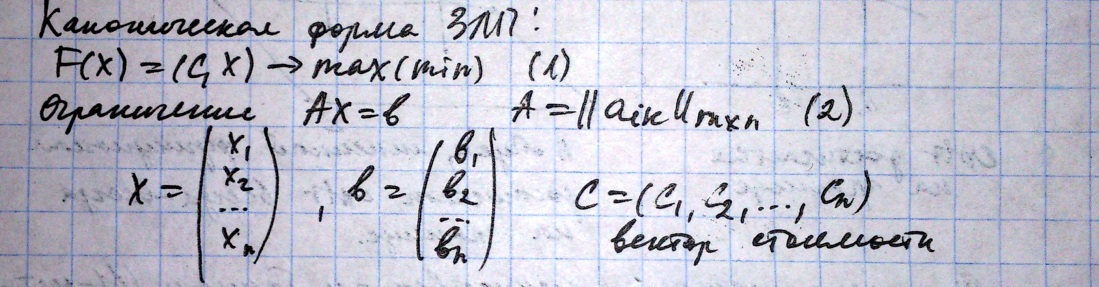 Каноническая форма ЗЛП:
F(x) = (C, X) → max(min) (1)
Ограничение AX = b A = ||aik||mxn (2)
X = (x1 x2 ... xn), b = (b1 b2 ... bn) C = (C1, C2, ..., Cn)
вектор стоимости